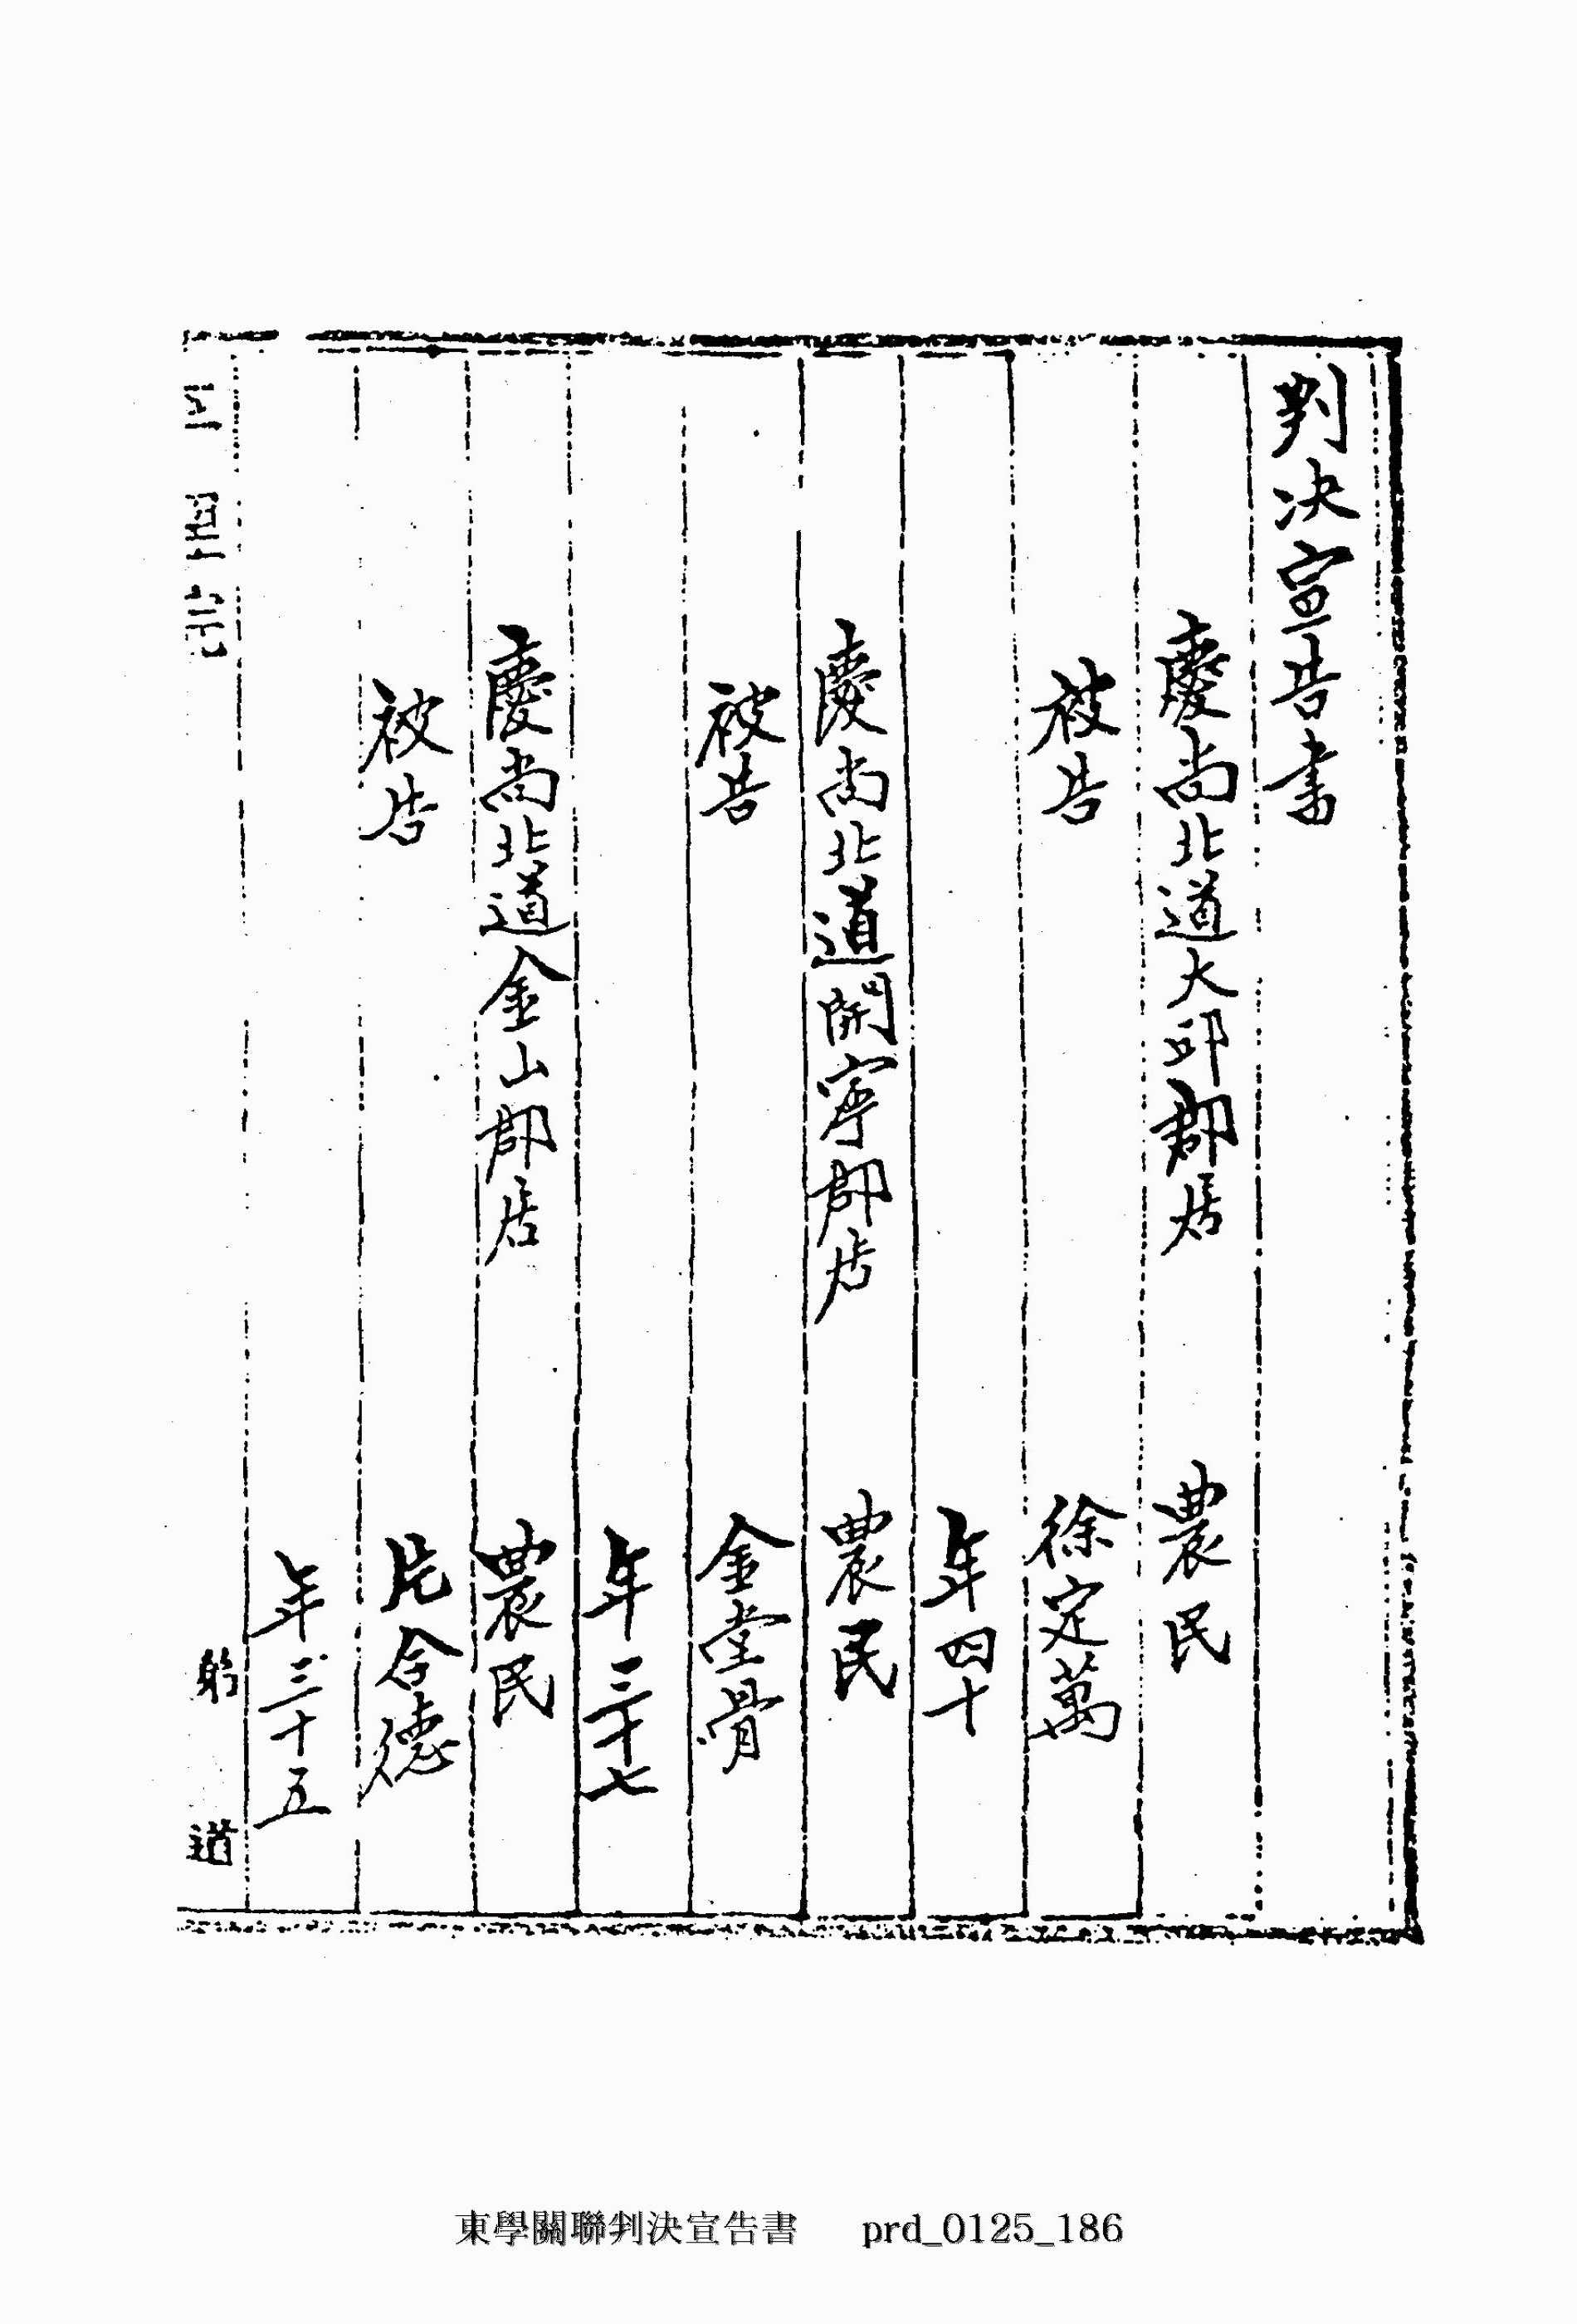 判決宣告書
慶尙北道大邱郡居 農民
被告 徐定萬
年四十
慶尙北道開寧郡居 農民
被告 金堂骨
年三十七
慶尙北道金山郡居 農民
被告 片今德
年三十五
道
東學關聯判決宣告書 prd_0125_186